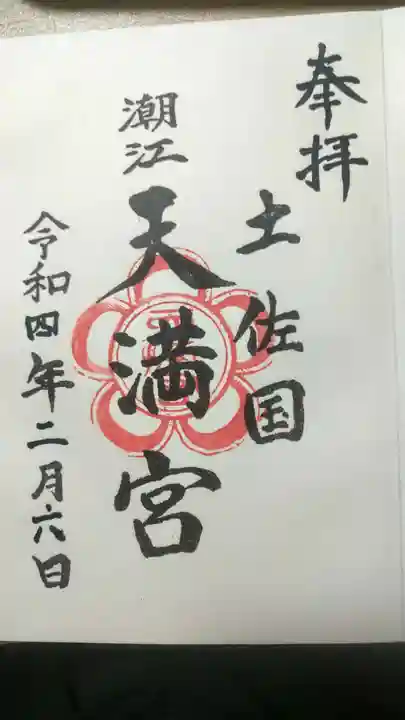 奉拝
土佐国
潮江
天満宮
令和四年二月六日